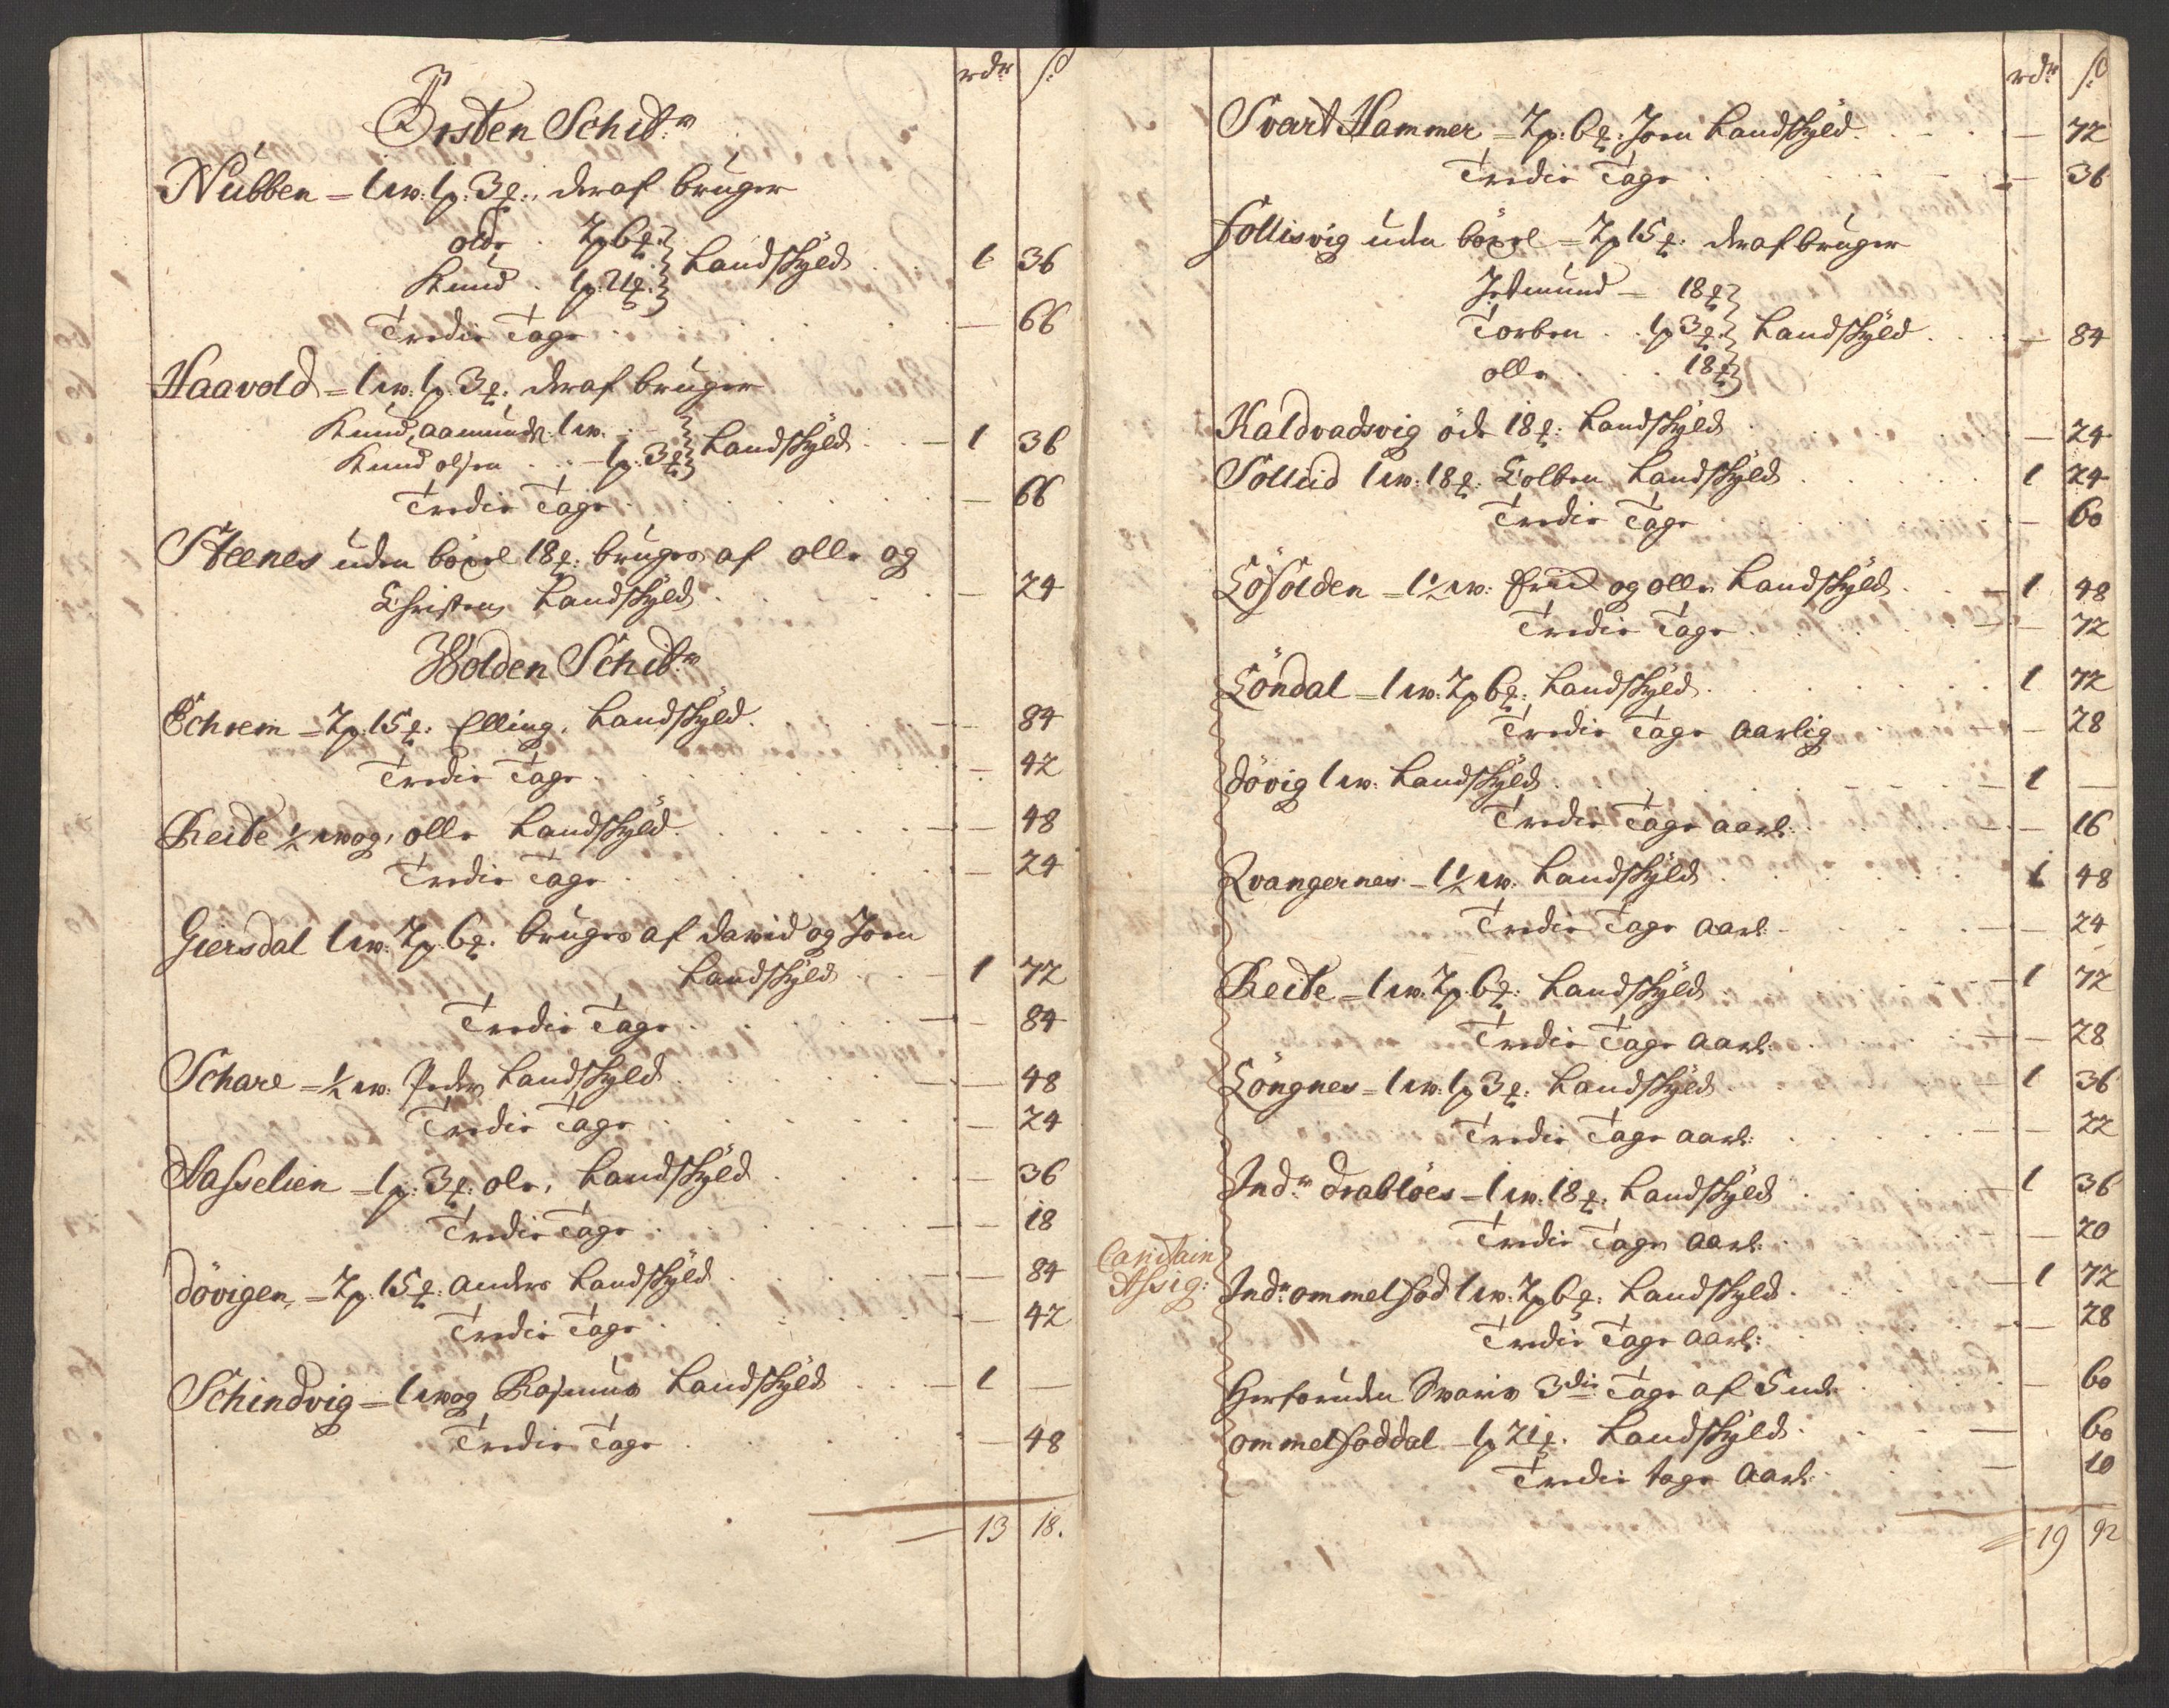 rdr ß
Ørsten Schibr
Nubben = 1 w: 1 p: 3 ℔: deraf bruger
olde . 2 p 6 ℔: Landschÿld . 1 36
Knud . 1 p: 21 ℔:
Tredie Tage . — 66
Haavold = 1 w: 1 p: 3 ℔: deraf bruger
Knud Aamunds: 1 w. Landschÿld . — 1 36
Knud olsen . . — 1 p: 3 ℔
Tredie Tage . — 66
Steenes uden böxel 18 ℔: bruges af olle og
Christen, Landschÿld . — 24
Wolden Schibr
Echrem = 2 p: 15 ℔: Elling, Landschÿld. — 84
Tredie Tage . — 42
Reite ½ wog, olle Landschÿld . — 48
Tredie Tage . — 24
Giersdal 1 w: 2 p: 6 ℔: bruges af David og Joen
Landschÿld . — 1 72
Tredie Tage . — 84
Schare = ½ w: Peder Landschÿld . — 48
Tredie Tage . — 24
Hasselien = 1 p: 3 ℔: ole, Landschÿld . — 36
Tredie Tage . — 18
Dövigen, = 2 p: 15 ℔: Anders Landschÿld . — 84
Tredie Tage . — 42
Schindvig = 1 wog Rasmus Landschÿld . — 1 —
Tredie Tage . — 48
— 13 18.
rdr ß
Svart Hammer = 2 p: 6 ℔: Joen Landschÿld . — 72
Tredie Tage . — 36
Follisvig uden böxel = 2 p 15 ℔: deraf bruger
Jetmund — 18 ℔
Torben . . 1 p 3 ℔ Landschÿld . — 84
olle . . 18 ℔
Kaldvadsvig öde 18 ℔: Landschÿld . — 24
Sollid 1 w: 18 ℔: Colben Landschÿld . 1 24
Tredie Tage . — 60
Löfolden = 1½ w: og olle Landschÿld . — 1 48
Tredie Tage . — 72
Löndal = 1 w: 2 p 6 ℔: Landschÿld . 1 72
Tredie Tage Aarlig — 28
Dövig 1 w: Landschÿld . — 1 —
Tredie Tage Aarl: . — 16
Qvangernes — 1½ w. Landschÿld . 1 48
Tredie Tage Aarl: . — 24
Reite = 1 w: 2 p: 6 ℔: Landschÿld — 1 72
Tredie Tage Aarl: . — 28
Löngnes = 1 w: 1 p 3 ℔: Landschÿld . — 1 36
Tredie Tage Aarl: . — 22
Indr Drablöes — 1 w. 18 ℔: Landschÿld . — 1 36
Tredie Tage Aarl: . — 20
Capitain
Assig:
Indr: ommelfod 1 w: 2 p 6 ℔: Landschÿld . — 1 72
Tredie Tage Aarl: . — 28
Herforuden Svaris 3die Tage af . — 60
ommelfoddal — 1 p 21 ℔. Landschÿld . — 60
Tredie tage Aarl: — 10
= 19 92